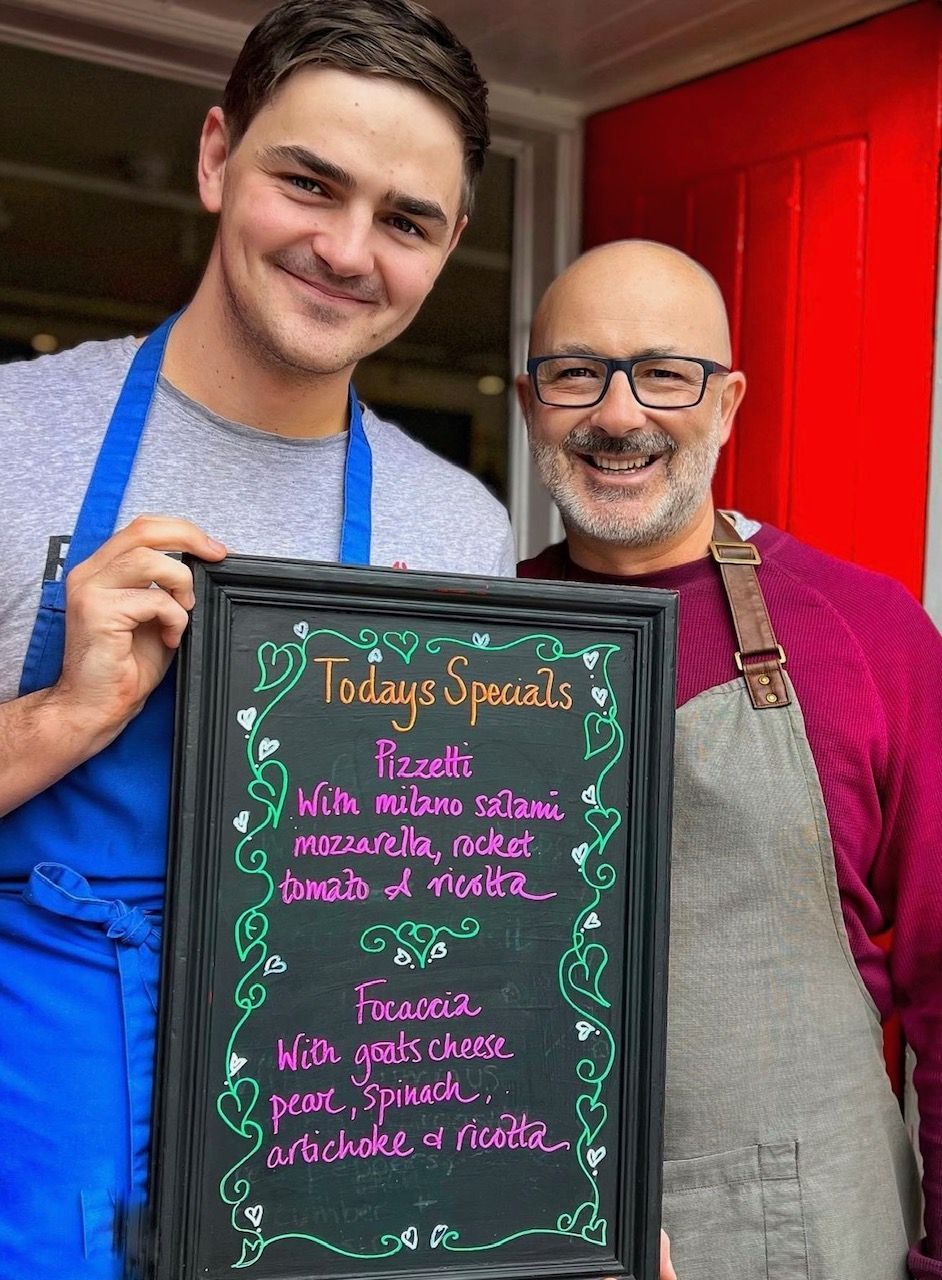 Todays Specials
Pizzetti
With milano salami
mozzarella, rocket
tomato & ricotta
Focaccia
With goats cheese
pear, spinach,
artichoke & ricotta